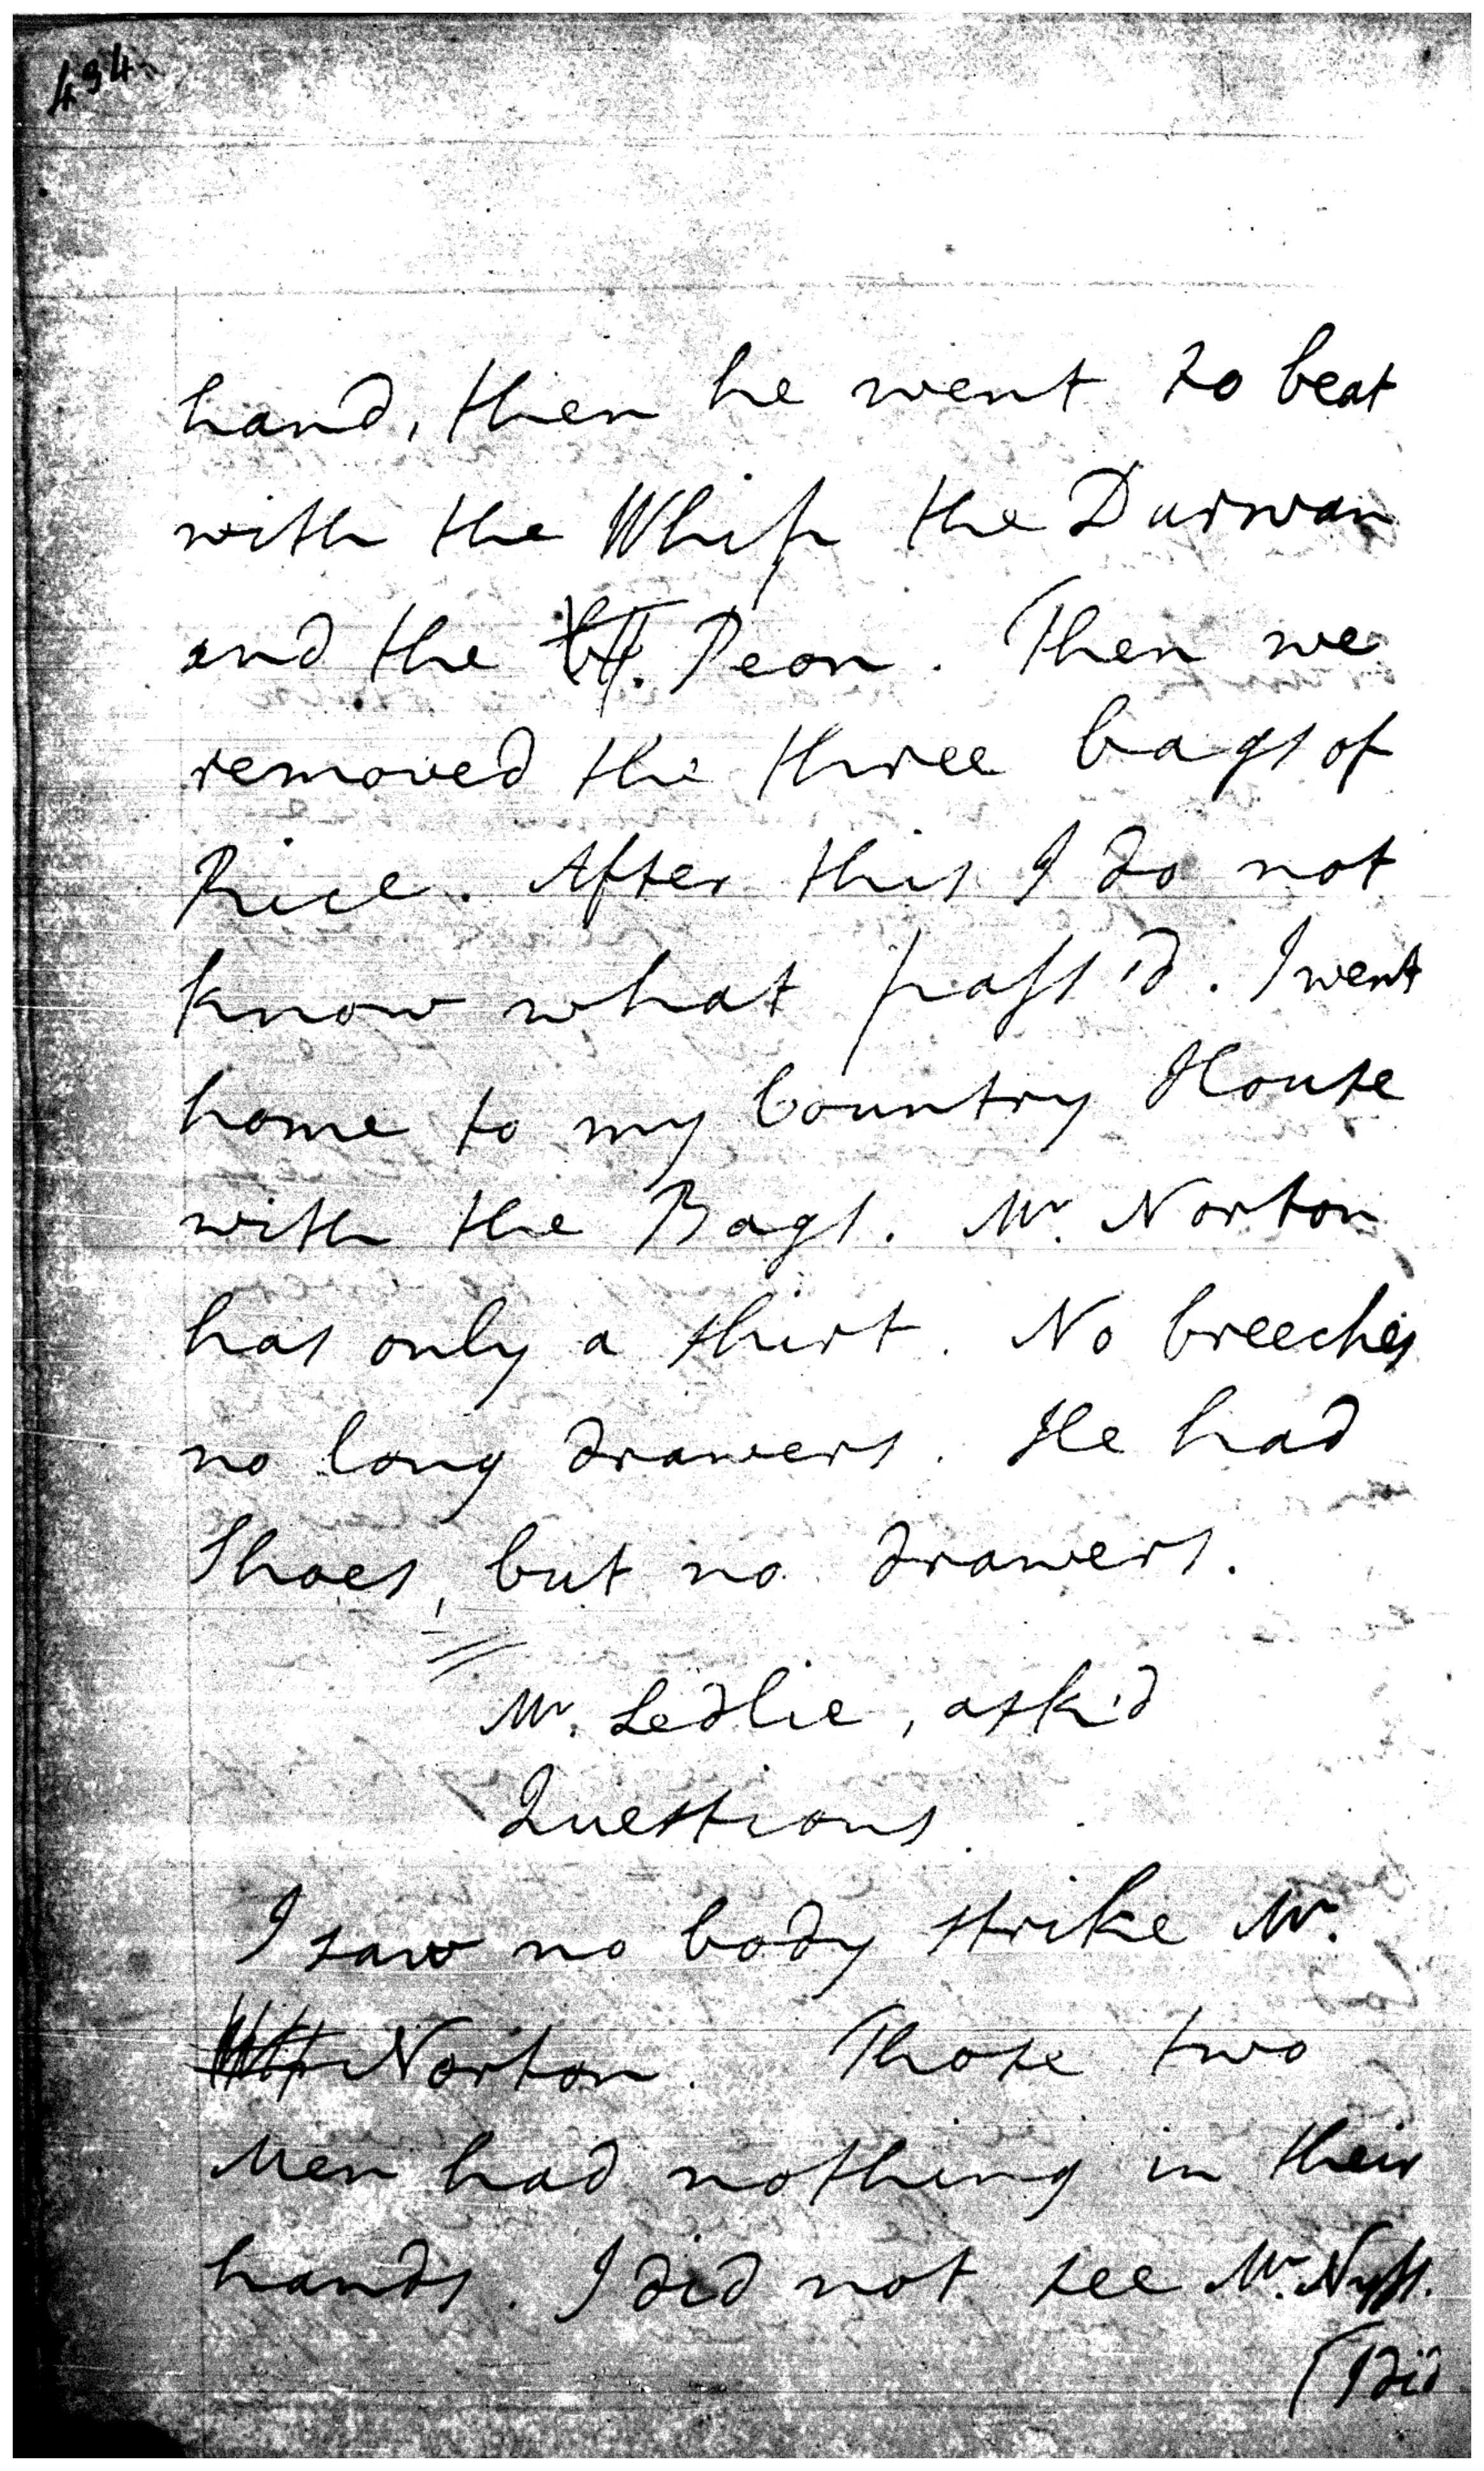 434
hand, then he went to beat
with the Whip the Durwan
and the Peon. Then we
removed the three bags of
Rice. After this I do not
know what pass'd. I went
home to my Country House
with the Bags. Mr. Norton
has only a shirt. No breeches
no long drawers. He had
Shoes, but no drawers.
Mr. Ledlie, ask'd
Questions
I saw no body strike Mr.
Norton. Those two
Men had nothing in their
hands. I did not see Mr.
(I did